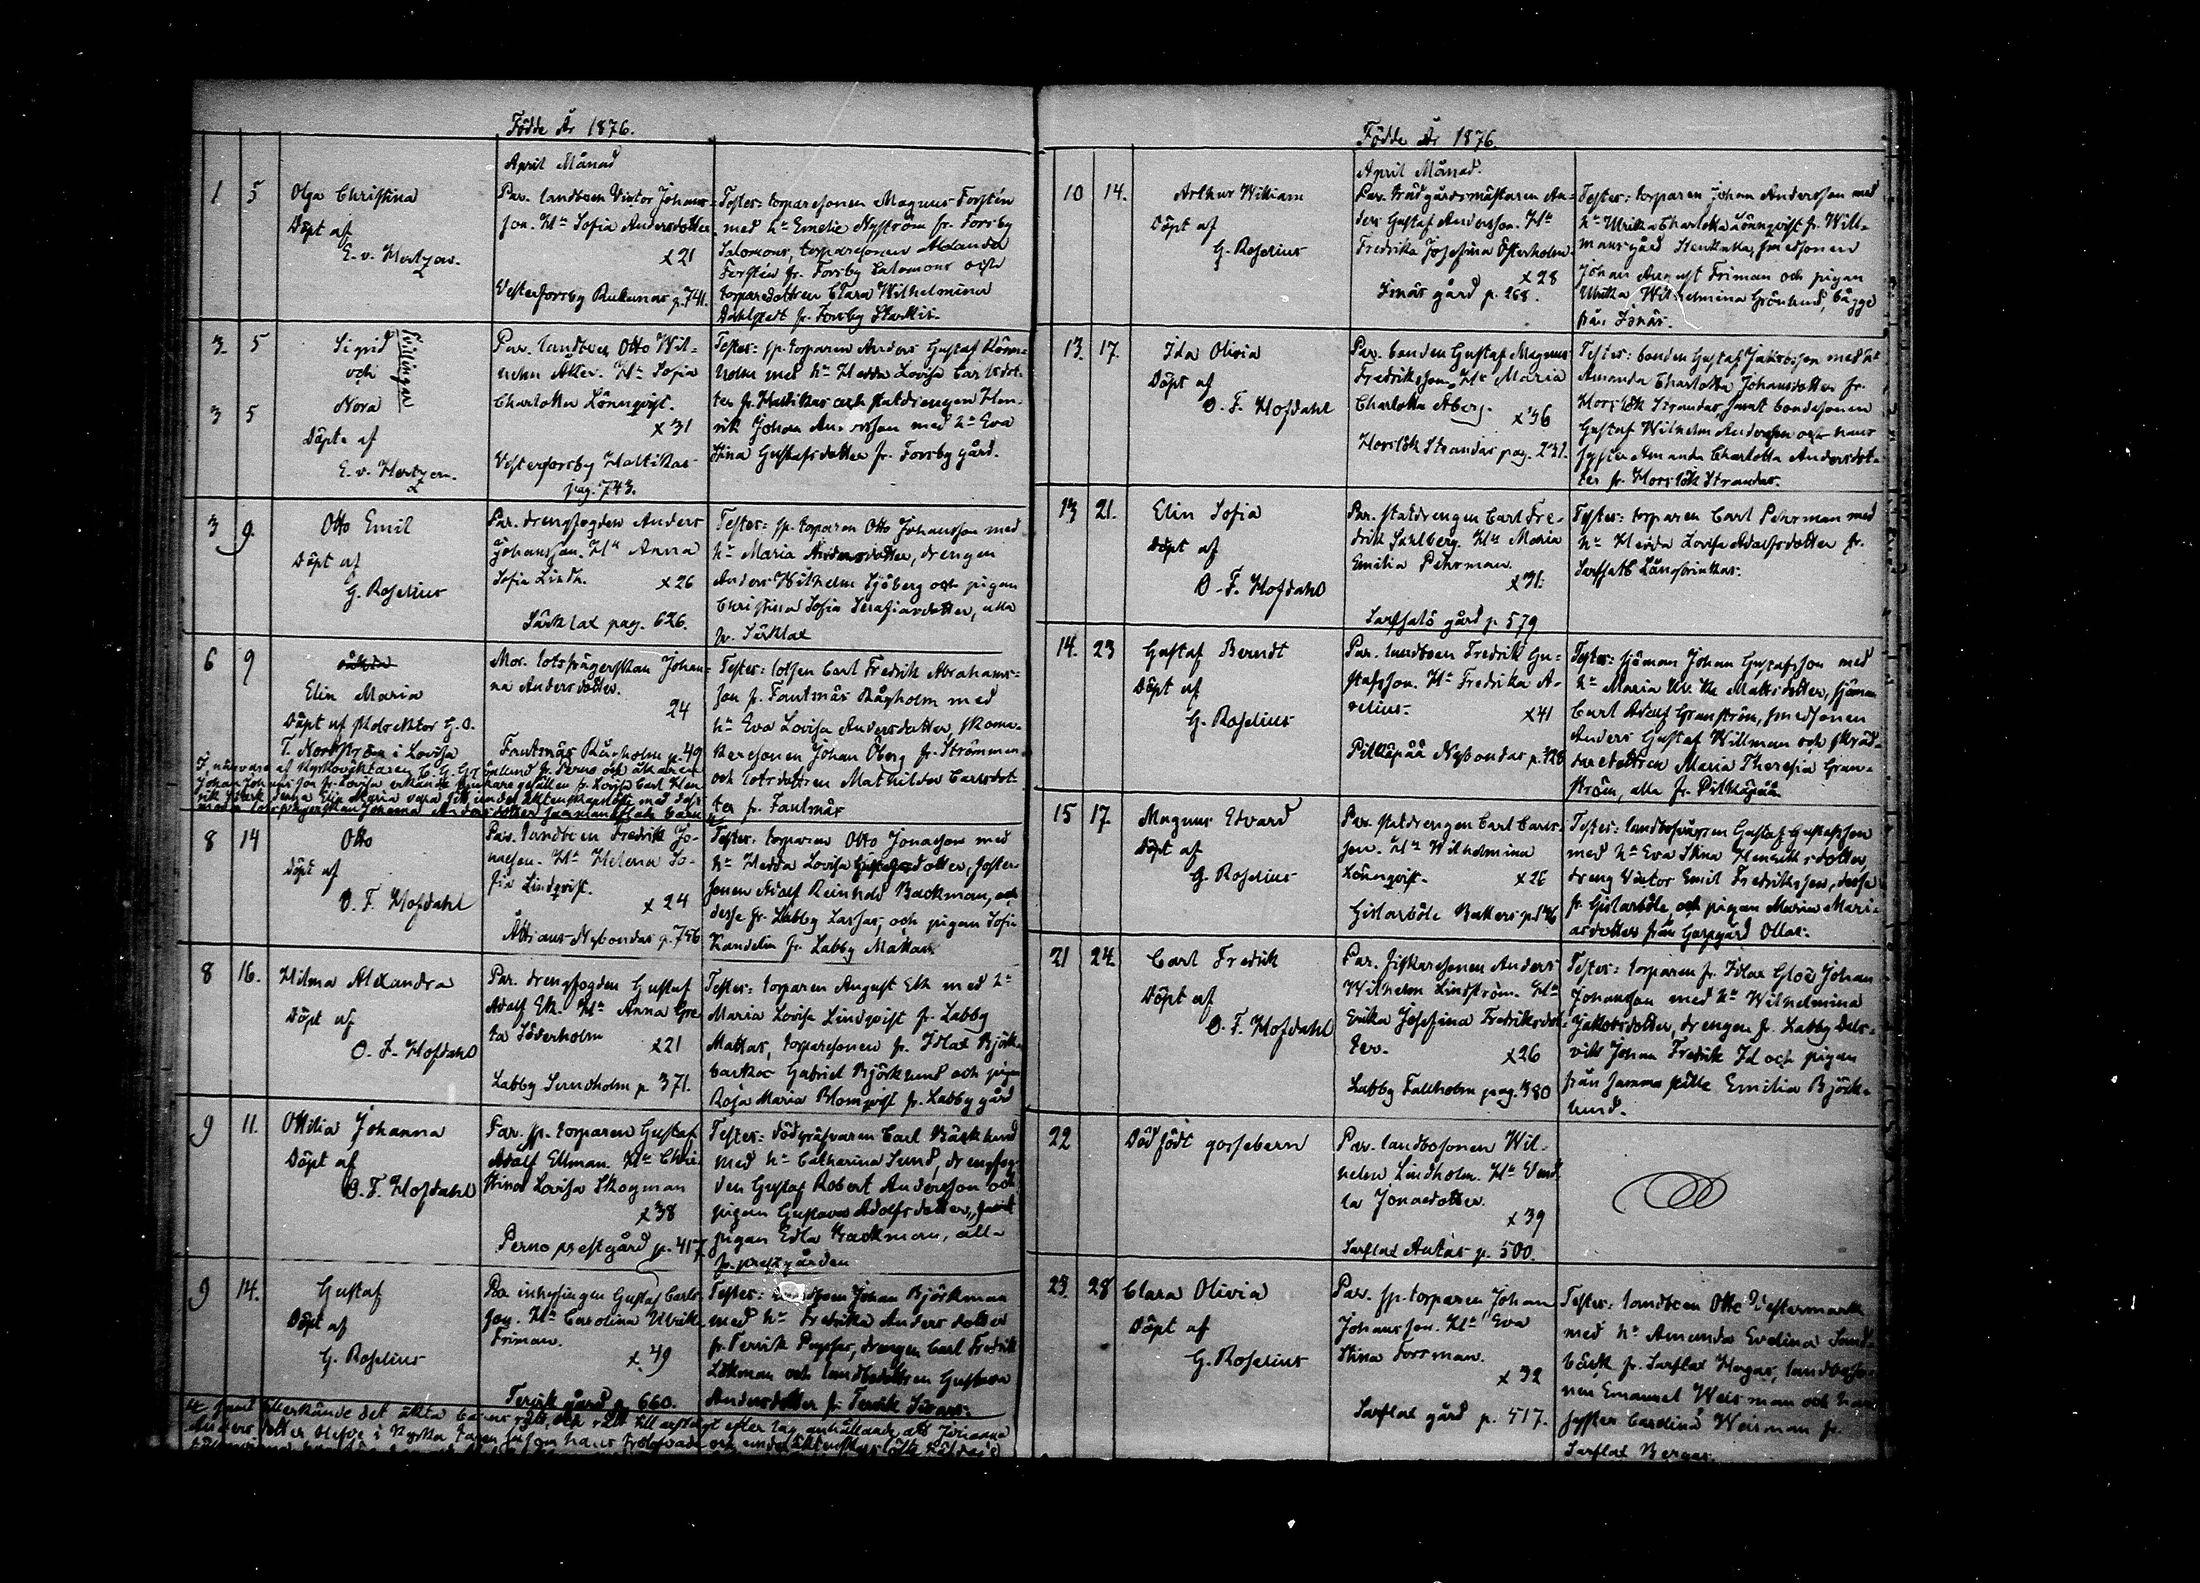 Födde År 1876.
April Månad
1 5 Olga Christina
Döpt af
E. v. Hertzen.
Par. landboen Victor Johans-
son. H:u Sofia Andersdotter
x 21
Vesterforsby Rukunas p. 741.
Tester: torparesonen Magnus Forstén
med h:u Emelie Nyström fr. Forsby
Salomons, torparesonen Alexander
Forstén fr. Forsby Salomons och
torparedottren Clara Wilhelmina
Dahlstedt fr. Forsby Starkis.
3. 5 Sigrid
och
3 5 Nora
Tvillingar
Döpta af
E. v. Hertzen.
Par. landboen Otto Wil-
helm Alter. H:u Sofia
Charlotta Lönnqvist.
x 31
Vesterforsby Hattikas
pag. 743.
Tester: sp. torparen Anders Gustaf Rönn-
holm med h:u Hedda Lovisa Carlsdot-
ter fr. Hattikas och statdrengen Hen-
rik Johan Andersson med h:u Eva
Stina Gustafsdotter fr. Forsby gård.
3 9. Otto Emil
Döpt af
G. Roselius
Par. drengfogden Anders
Johansson. H:u Anna
Sofia Lindh. x 26
Särklax pag. 626.
Tester: sp. torparen Otto Johansson med
h:u Maria Andersdotter, drengen
Anders Wilhelm Sjöberg och pigan
Christina Sofia Serafiasdotter, alla
fr. Särklax
6 9 oäkta
Elin Maria
Döpt af Pldrektor G. O.
T. Nordström i Lovisa
Mor. lotsfrägerskan Johan-
na Andersdotter.
24
Fantsnäs Rågholm p. 49
Tester: lotsen Carl Fredrik Abrahams-
son fr. Fantsnäs Rågholm med
h:u Eva Lovisa Andersdotter, skoma-
karesonen Johan Öberg fr. Strömmen
och lotsdottren Mathilda Carlsdot-
ter fr. Fantsnäs
I närvaro af Kyrkoväktaren C. G. Grönlund fr. Perno och
Johan Johansson fr. Lovisa erkände
denna Elin Maria vara
8 14 Otto
Döpt af
O. F. Hofdahl
Par. landboen Fredrik Jo-
nasson. H:u Helena So-
fia Lindqvist.
x 24
Nybondas p. 756
Tester: torparen Otto Jonasson med
h:u Hedda Lovisa Gustafsdotter, foster-
sonen Adolf Reinhold Backman, och
desse fr. Labby Lassas, och pigan Sofia
Kandelin fr. Labby Mattas
8 16. Hilma Alexandra
Döpt af
O. F. Hofdahl
Par. drengfogden Gustaf
Adolf Ek. H:u Anna Gre-
ta Söderholm
x 21
Labby Sundholm p. 371.
Tester: torparen August Ek med h:u
Maria Lovisa Lindqvist fr. Labby
Mattas, torparesonen fr. Idlax Björk-
backas Gabriel Björklund och pigan
Rosa Maria Blomqvist fr. Labby gård
9 11. Ottilia Johanna
Döpt af
O. F. Hofdahl
Far. sp. torparen Gustaf
Adolf Ellman. H:u Chri-
stina Lovisa Skogman
x 38
Perno prestgård p. 417
Tester: dödgräfvaren Carl Bäcklund
med h:u Catharina Sund, drengfog-
den Gustaf Robert Andersson och
pigan Gustava Adolfsdotter, samt
pigan Edla Backman, alla
fr. prestgården
9 14. Gustaf
Döpt af
G. Roselius
Par. inhysingen Gustaf Carls-
son. H:u Carolina Ulrika
Friman.
x 49
Tervik gård p. 660.
Tester: landboen Johan Björkman
med h:u Fredrika Andersdotter
fr. Tervik Pepsas, drengen Carl Fredrik
Lökman och landbodottren Gustava
Andersdotter fr. Tervik Sivars.
Födde År 1876.
April Månad.
10 14. Arthur William
Döpt af
G. Roselius
Par. trädgårdsmästaren An-
ders Gustaf Andersson. H:u
Fredrika Josefina Österholm
x 28
Isnäs gård p. 268.
Tester: torparen Johan Andersson med
h:u Ulrika Charlotta Lönnqvist fr. Will-
mansgård Henttula, smedsonen
Johan August Friman och pigan
Ulrika Wilhelmina Grönlund, bägge
från Isnäs.
13. 17. Ida Olivia
Döpt af
O. F. Hofdahl
Par. bonden Gustaf Magnus
Fredriksson. H:u Maria
Charlotta Åberg. x 36
Horslök Strandas pag. 231.
Tester: bonden Gustaf Jakobsson med h:u
Amanda Charlotta Johansdotter fr.
Horslök Strandas, samt bondesonen
Gustaf Wilhelm Andersson och hans
syster Amanda Charlotta Andersdot-
ter fr. Horslök Strandas.
13 21. Elin Sofia
Döpt af
O. F. Hofdahl
Par. statdrengen Carl Fre-
drik Sahlberg. H:u Maria
Emilia Pehrman.
x 31.
Sarfsalö gård p. 579
Tester: torparen Carl Pehrman med
h:u Hedda Lovisa Adolfsdotter fr.
Sarfsalö Långbrinkas.
14. 23 Gustaf Berndt
Döpt af
G. Roselius
Par. landboen Fredrik Gu-
stafsson. H:u Fredrika A-
relius. x 41
Pitkäpää Nybondas p. 328
Tester: sjöman Johan Gustafsson med
h:u Maria Ulrika Mattsdotter, sjöman
Carl Adolf Granström, smedsonen
Anders Gustaf Willman och skräd-
daredottren Maria Theresia Gran-
ström, alla fr. Pitkäpää
15 17 Magnus Edvard
Döpt af
G. Roselius
Par. statdrengen Carl Carls-
son. H:u Wilhelmina
Lönnqvist. x 26
Gislarböle Backers p. 146
Tester: landbosvågren Gustaf Gustafsson
med h:u Eva Stina Henriksdotter,
dreng Victor Emil Fredriksson, desse
fr. Gislarböle och pigan Maria Mari-
asdotter från Gargård Ollas.
21 24. Carl Fredrik
Döpt af
O. F. Hofdahl
Par. fiskaresonen Anders
Wilhelm Lindström. H:u
Erika Josefina Fredriksdot-
ter. x 26
Labby Fallholm pag. 380
Tester: torparen fr. Idlax Gloë Johan
Johansson med h:u Wilhelmina
Jakobsdotter, drengen fr. Labby Dals-
vik Johan Fredrik Id och pigan
från samma ställe Emilia Björk-
lund.
22 Dödfödt gossebarn
Par. landbosonen Wil-
helm Lindholm. H:u Vend-
la Jonasdotter.
x 39
Sarflax Antas p. 500.
23. 28 Clara Olivia
Döpt af
G. Roselius
Par. sp. torparen Johan
Johansson. H:u Eva
Stina Forsman.
x 32
Sarflax gård p. 517.
Tester: landboen Otto Vestermark
med h:u Amanda Evelina Sand-
bäck fr. Sarflax Hagas, landboso-
nen Emanuel Weisman och hans
syster Carolina Weisman fr.
Sarflax Bergas.